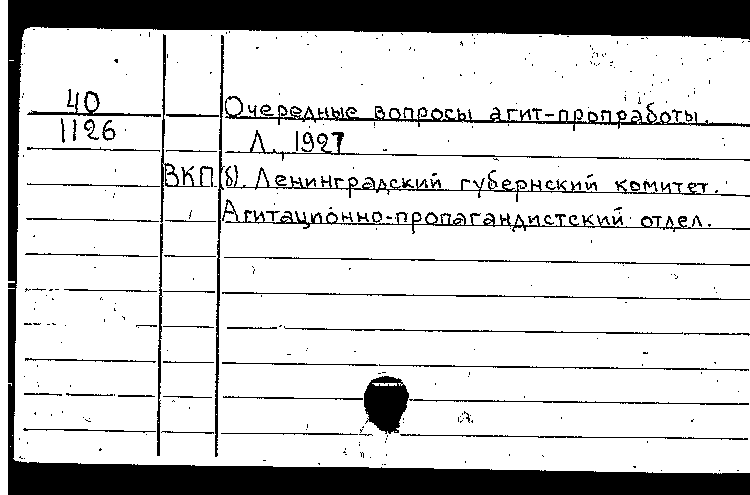 40
Очередные вопросы агит-пропработы.
1126
Л., 1927
ВКП(б). Ленинградский губернский комитет.
Агитационно-пропагандистский отдел.